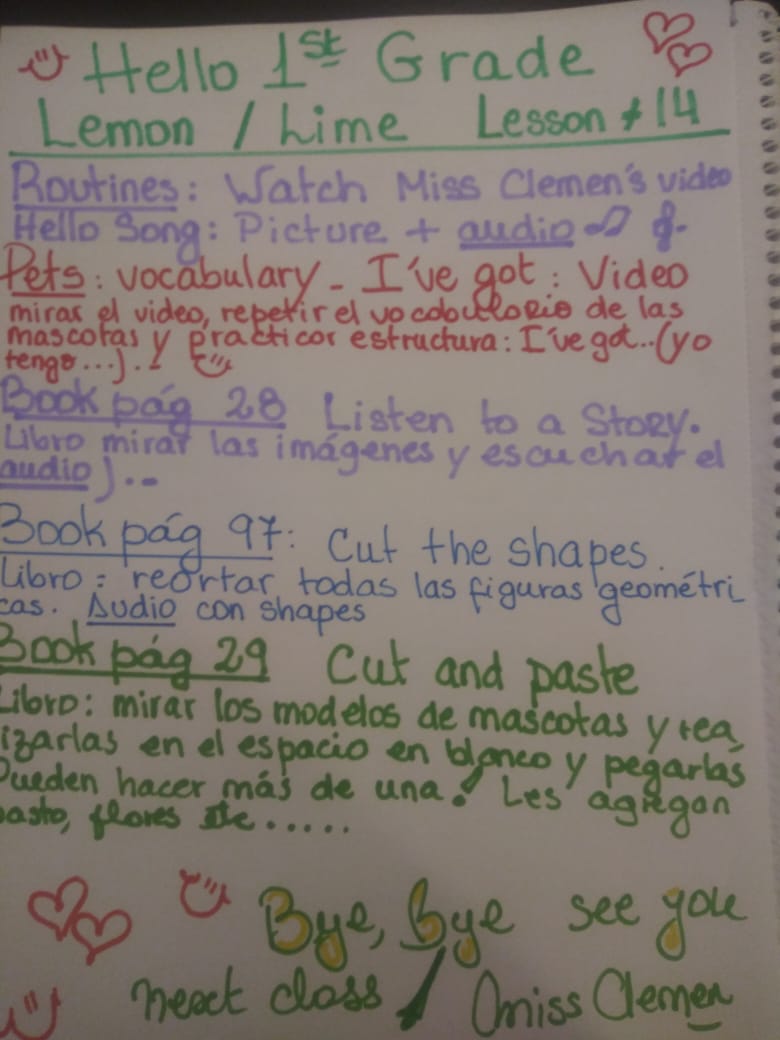 Hello 1st Grade
Lemon / Lime Lesson # 14
Routines: Watch Miss Clemen's video
Hello Song: Picture + audio
Pets: vocabulary - I've got: Video
mirar el video, repetir el vocabullorio de las
mascotas y practicar estructura: I've got..(yo
tengo...).!
Book pág 28 Listen to a Story.
Libro mirar las imágenes y escuchar el
audio)...
Book pág 97: Cut the shapes.
Libro: reortar todas las figuras geométri_
cas. Audio con shapes
Book pág 29 Cut and paste
Libro: mirar los modelos de mascotas y rea
izarlas en el espacio en blanco y pegarlas
Pueden hacer más de una! Les agregan
pasto, flores etc.....
Bye, Bye see you
next class / Miss Clemen